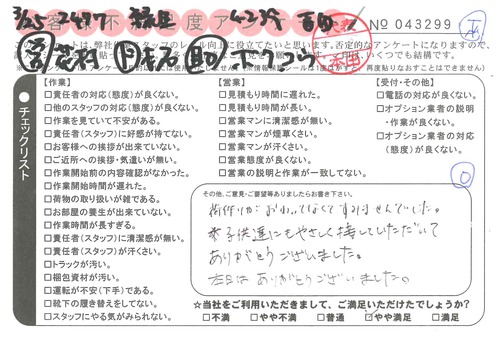 3/25 2497
お客様不満足度アンケート
No 043299
このアンケートは、弊社
スタッフのレベル向上に役立てたいと思います。否定的なアンケートになりますので、
●チェックリスト
【作業】
□責任者の対応(態度)が良くない。
□他のスタッフの対応(態度)が良くない。
□作業を見ていて不安がある。
□責任者(スタッフ)に好感が持てない。
□お客様への挨拶が出来ていない。
□ご近所への挨拶・気遣いが無い。
□作業開始前の内容確認がなかった。
□作業開始時間が遅れた。
□荷物の取り扱いが雑である。
□お部屋の養生が出来ていない。
□作業時間が長すぎる。
□責任者(スタッフ)に清潔感が無い。
□責任者(スタッフ)が汗くさい。
□トラックが汚い。
□梱包資材が汚い。
□運転が不安(下手)である。
□靴下の履き替えをしてない。
□スタッフにやる気がみられない。
【営業】
□見積もり時間に遅れた。
□見積もり時間が長い。
□営業マンに清潔感が無い。
□営業マンが煙草くさい。
□営業マンが汗くさい。
□営業態度が良くない。
□営業の説明と作業が一致してない。
【受付・その他】
□電話の対応が良くない。
□オプション業者の説明
・作業が良くない。
□オプション業者の対応
(態度)が良くない。
その他、ご意見・ご要望等ありましたらお書き下さい。
荷作りがおわってなくてすみませんでした。
子供達にもやさしく接していただいて
ありがとうございました。
本日はありがとうございました。
☆当社をご利用いただきまして、ご満足いただけたでしょうか?
□不満 □やや不満 □普通 ☑やや満足 □満足